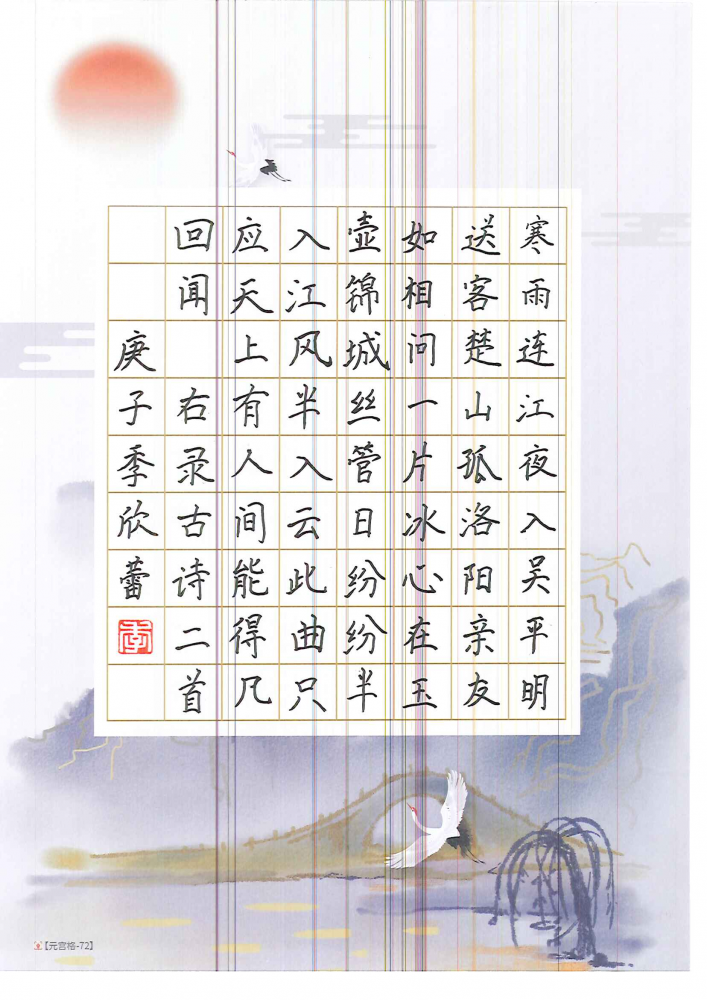 寒雨连江夜入吴平明
送客楚山孤洛阳亲友
如相问一片冰心在玉
壶锦城丝管日纷纷半
入江风半入云此曲只
应天上有人间能得几
回闻 右录古诗二首
庚子季欣蕾
季
【元宫格-72】